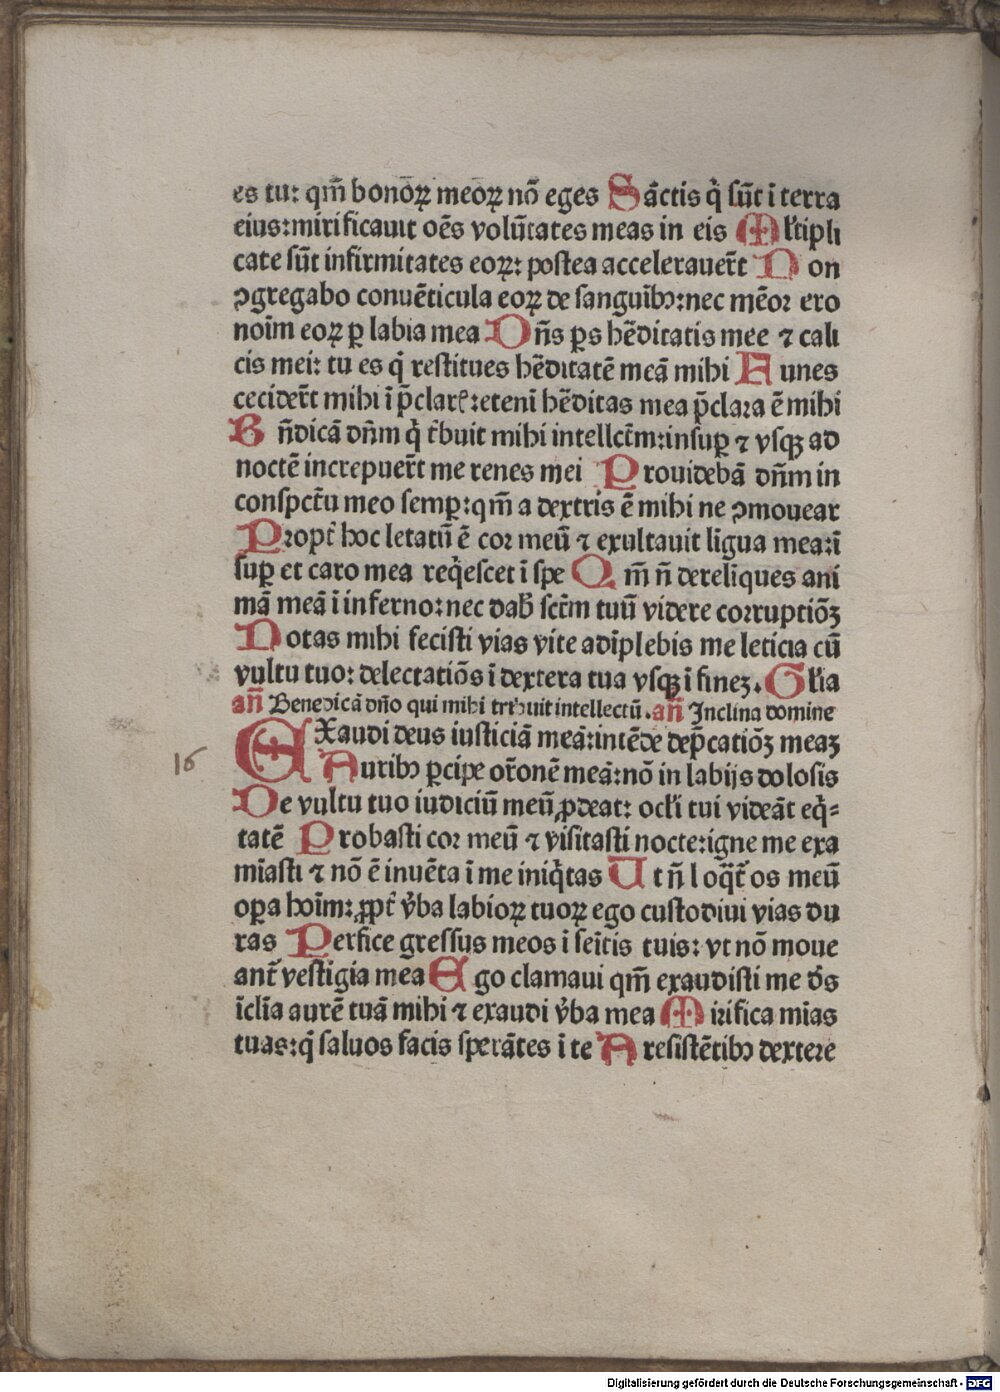 es tu: qm̄ bonoꝝ meoꝝ nō eges Sāctis q̇ sūt ī terra
eius: mirificauit oēs volūtates meas in eis Ml̄tipli
cate sūt infirmitates eoꝝ: postea accelerauer̄t Non
ꝯgregabo conuēticula eoꝝ de sanguībꝰ: nec mēor ero
noīm eoꝝ ꝑ labia mea Dn̄s ꝑs hēditatis mee ⁊ cali
cis mei: tu es q̇ restitues hēditatē meā mihi Funes
cecider̄t mihi ī p̄clarꝭ: etenī hēditas mea p̄clara ē mihi
Bn̄dicā dn̄m q̇ t̄buit mihi intellc̄tm: insuꝑ ⁊ vsqꝫ ad
noctē increpuer̄t me renes mei Prouidebā dn̄m in
conspc̄tu meo semꝑ: qm̄ a dextris ē mihi ne ꝯmouear
Propt̄ hoc letatū ē cor meū ⁊ exultauit līgua mea: ī
suꝑ et caro mea req̇escet ī spe Qm̄ n̄ derelīques ani
mā meā ī inferno: nec dab̄ sc̄tm tuū videre corruptiōꝫ
Notas mihi fecisti vias vite adīplebis me leticia cū
vultu tuo: delectatiōs ī dextera tua vsqꝫ ī fineꝫ. Gl̄ia
an̄ Benedicā dn̄o qui mihi tribuit intellectū. an̄ Inclina domine
EXaudi deus iusticiā meā: intēde dep̄catiōꝫ meaꝫ
16
Auribꝰ ꝑcipe or̄onē meā: nō in labijs dolosis
De vultu tuo iudiciū meū ꝓdeat: ocl̄i tui videāt eq̇-
tatē Probasti cor meū ⁊ visitasti nocte: igne me exa
mīasti ⁊ nō ē inuēta ī me iniq̇tas Ut n̄ loq̄t̄ os meū
oꝑa hoīm: ꝓpt̄ v̄ba labioꝝ tuoꝝ ego custodiui vias du
ras Perfice gressus meos ī semītis tuis: vt nō moue
ant̄ vestigia mea Ego clamaui qm̄ exaudisti me ds̄
īclīa aurē tuā mihi ⁊ exaudi v̄ba mea Mirifica mīas
tuas: q̇ saluos facis sperātes ī te A resistētibꝰ dextere
Digitalisierung gefördert durch die Deutsche Forschungsgemeinschaft - DFG